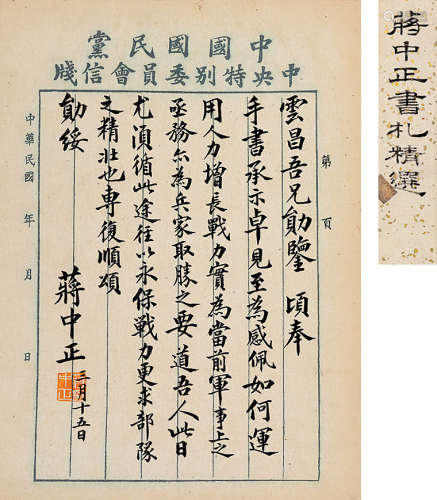 中國國民黨
中央特別委員會信牋
第 頁
雲昌吾兄勛鑒 頃奉
手書承示卓見至為感佩如何運
用人力增長戰力實為當前軍事上之
亟務亦為兵家取勝之要道吾人此日
尤須循此途徑以永保戰力更求部隊
之精壯也專復順頌
勛綏
蔣中正 三月十五日
中華民國 年 月 日
蔣中正書札精選